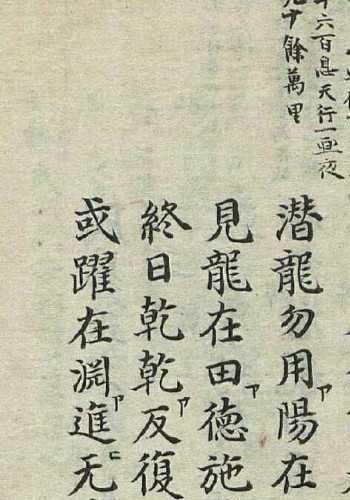 六百息天行一晝夜
九十餘萬里
潛龍勿用ア陽在
見龍在田ア德施
終日乾乾ア反復
或躍在淵ア進ニ无